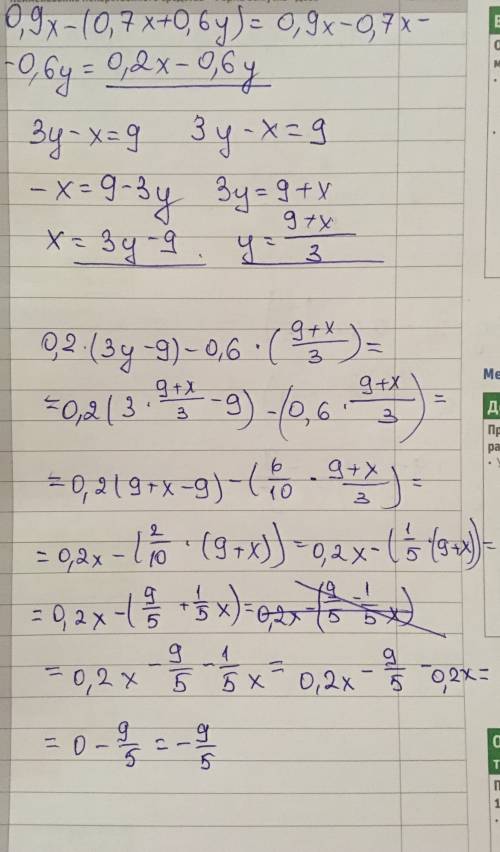 0,9x-(0,7x+0,6y)= 0,9x-0,7x-
-0,6y= 0,2x-0,6y
3y-x=9 3y-x=9
-x=9-3y 3y=9+x
x=3y-9. y=\frac{9+x}{3}
0,2·(3y-9)-0,6·(\frac{9+x}{3})=
=0,2(3·\frac{9+x}{3}-9)-(0,6·\frac{9+x}{3})=
=0,2(9+x-9)-(\frac{6}{10}·\frac{9+x}{3})=
=0,2x-(\frac{2}{10}·(9+x))=0,2x-(\frac{1}{5}·(9+x))=
=0,2x-(\frac{9}{5}+\frac{1}{5}x)=0,2x-(\frac{9}{5}-\frac{1}{5}x)
=0,2x-\frac{9}{5}-\frac{1}{5}x=0,2x-\frac{9}{5}-0,2x=
=0-\frac{9}{5}=-\frac{9}{5}
Ме
Пр
ра